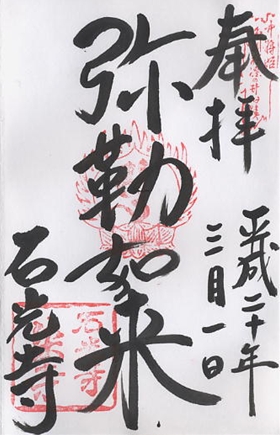 奉拝
平成二十年
三月一日
弥勒如来
石光寺
石光寺